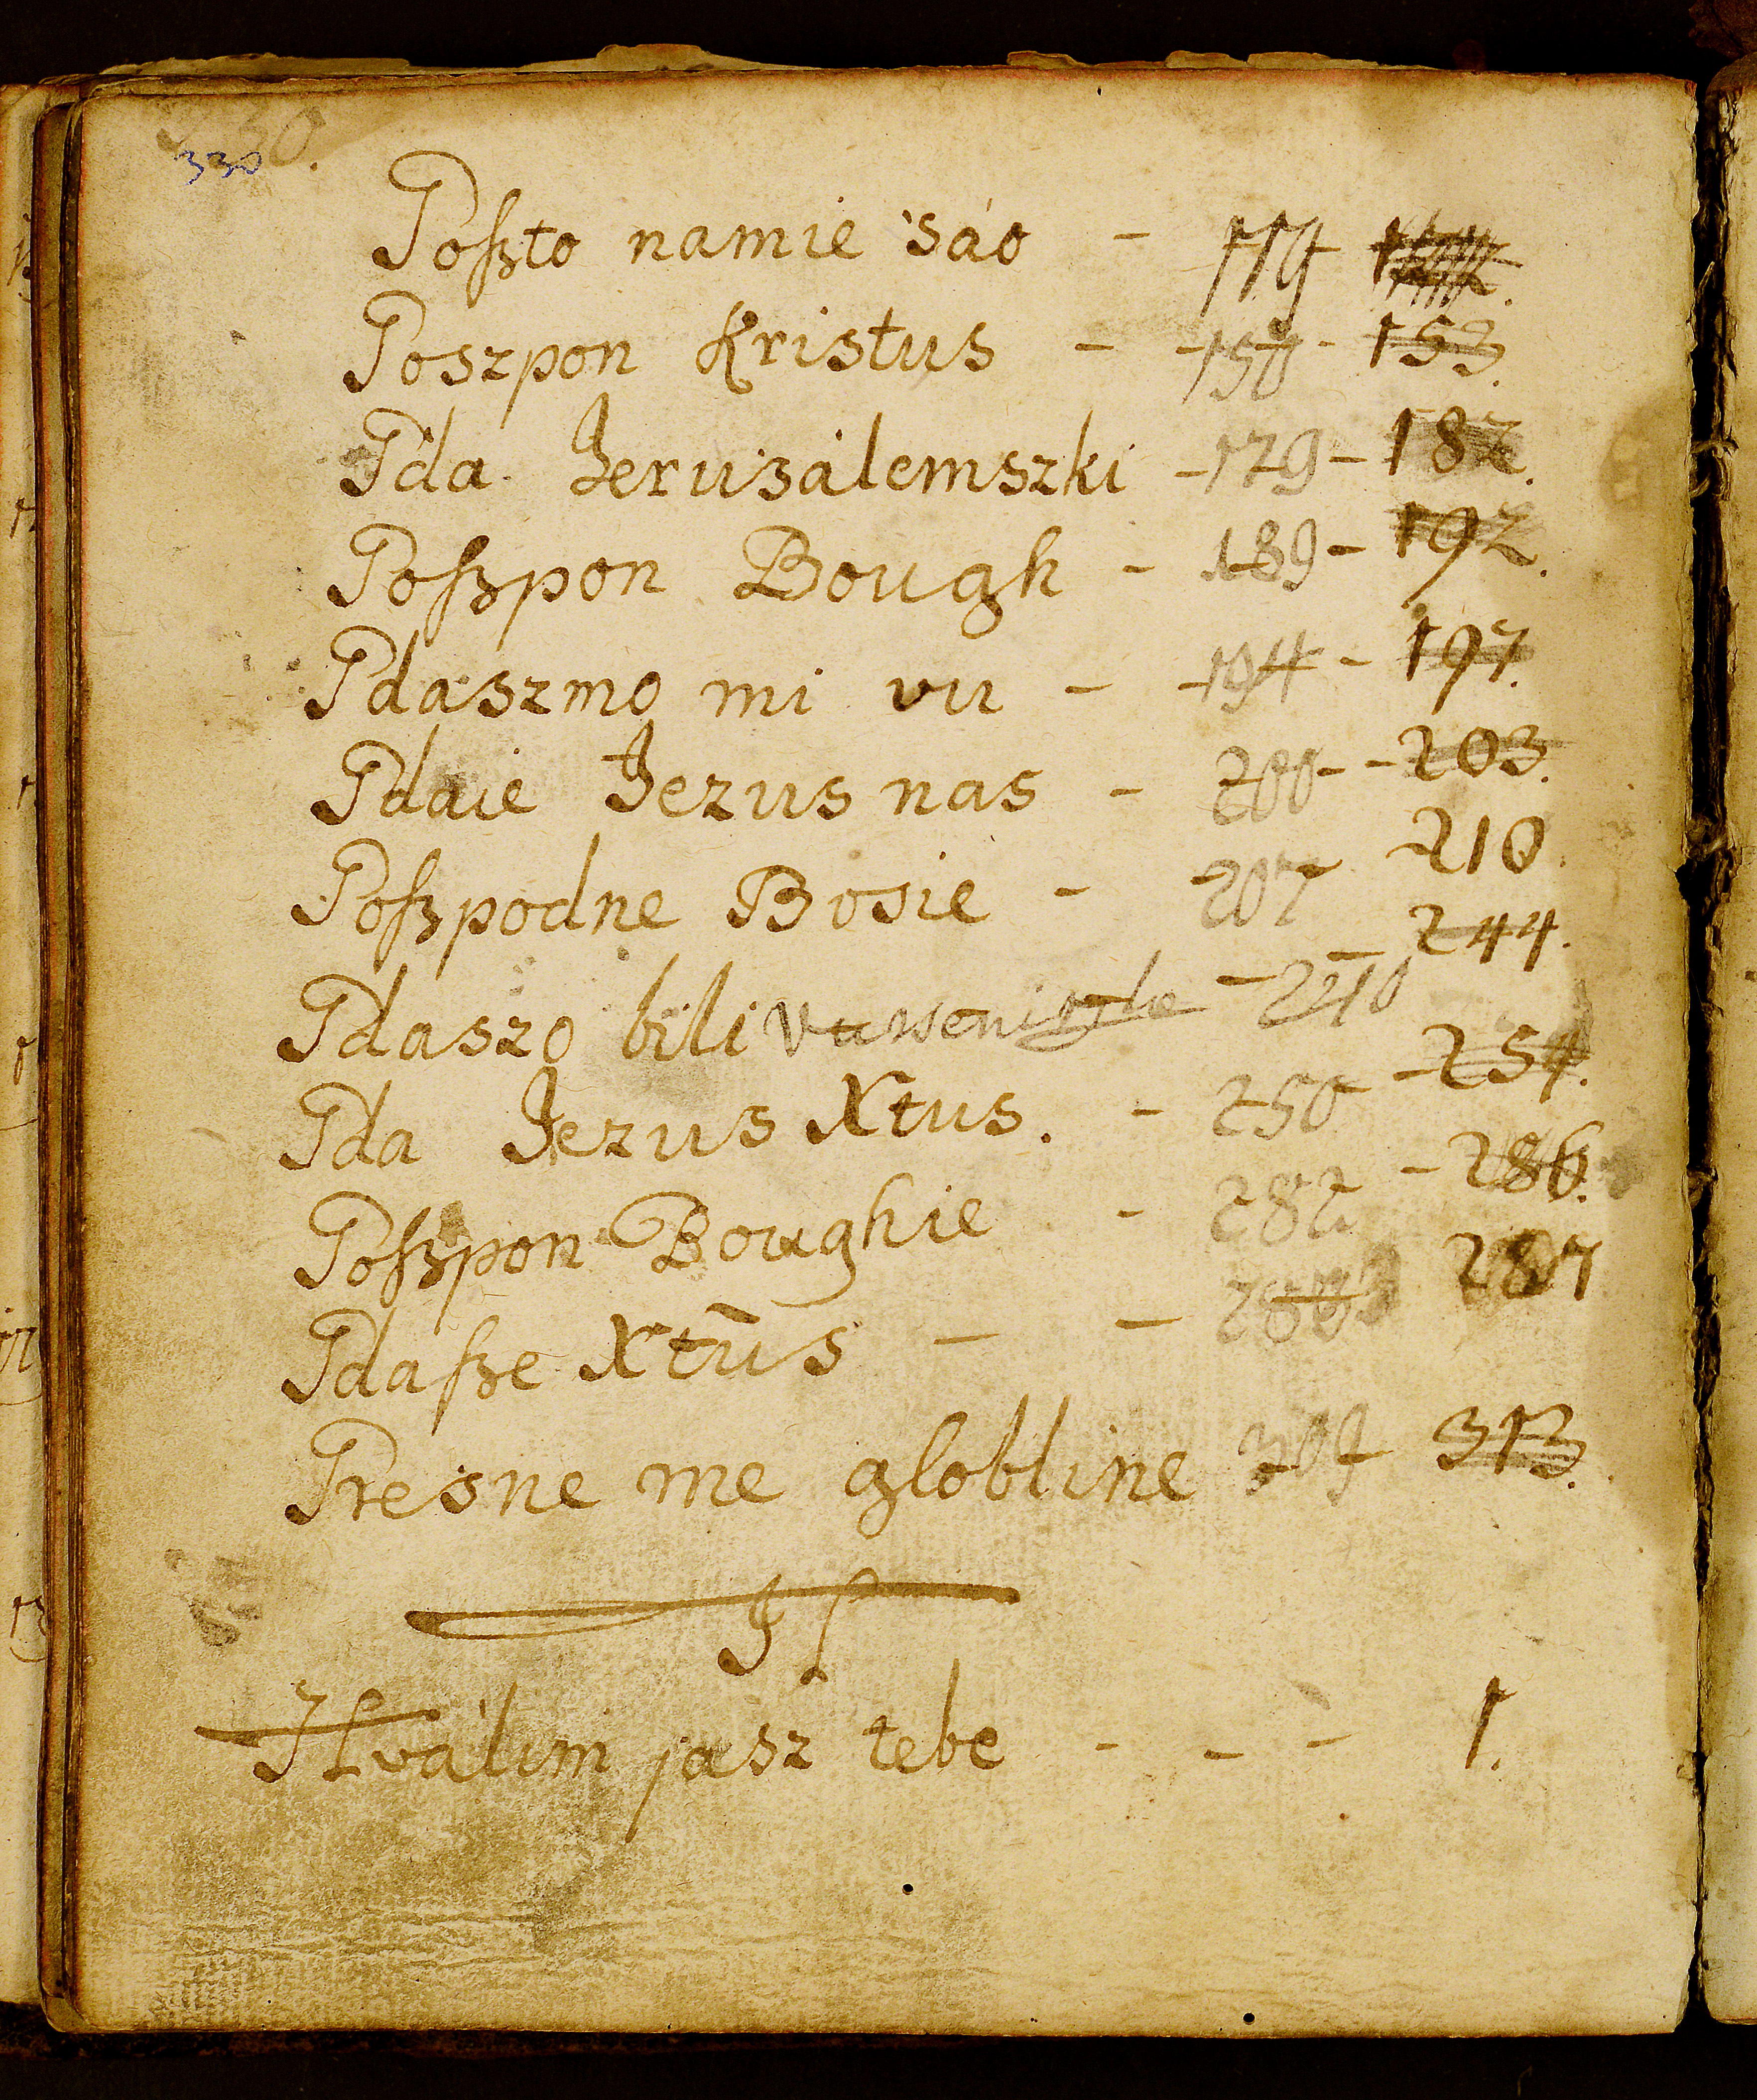 330
Poſzto namie sáo - 119
Poszpon Kristus - 150 - 153.
Pda Jeruzálemszki - 179 - 182.
Poſzpon Bough - 189 - 192.
Pdaszmo mi vu - 194 - 197.
Pdaie Jezus nas - 200 - 203.
Poſzpodne Bosie - 207 210.
Pdaszo bili - 240 - 244.
Pda Jezus Xtus. - 250 - 254.
Poſzpon Boughie - 282 - 286.
Pdaſze Xtūs - - 287
Presne me globline 309 313.
Hválim jasz tebe - - - 1.